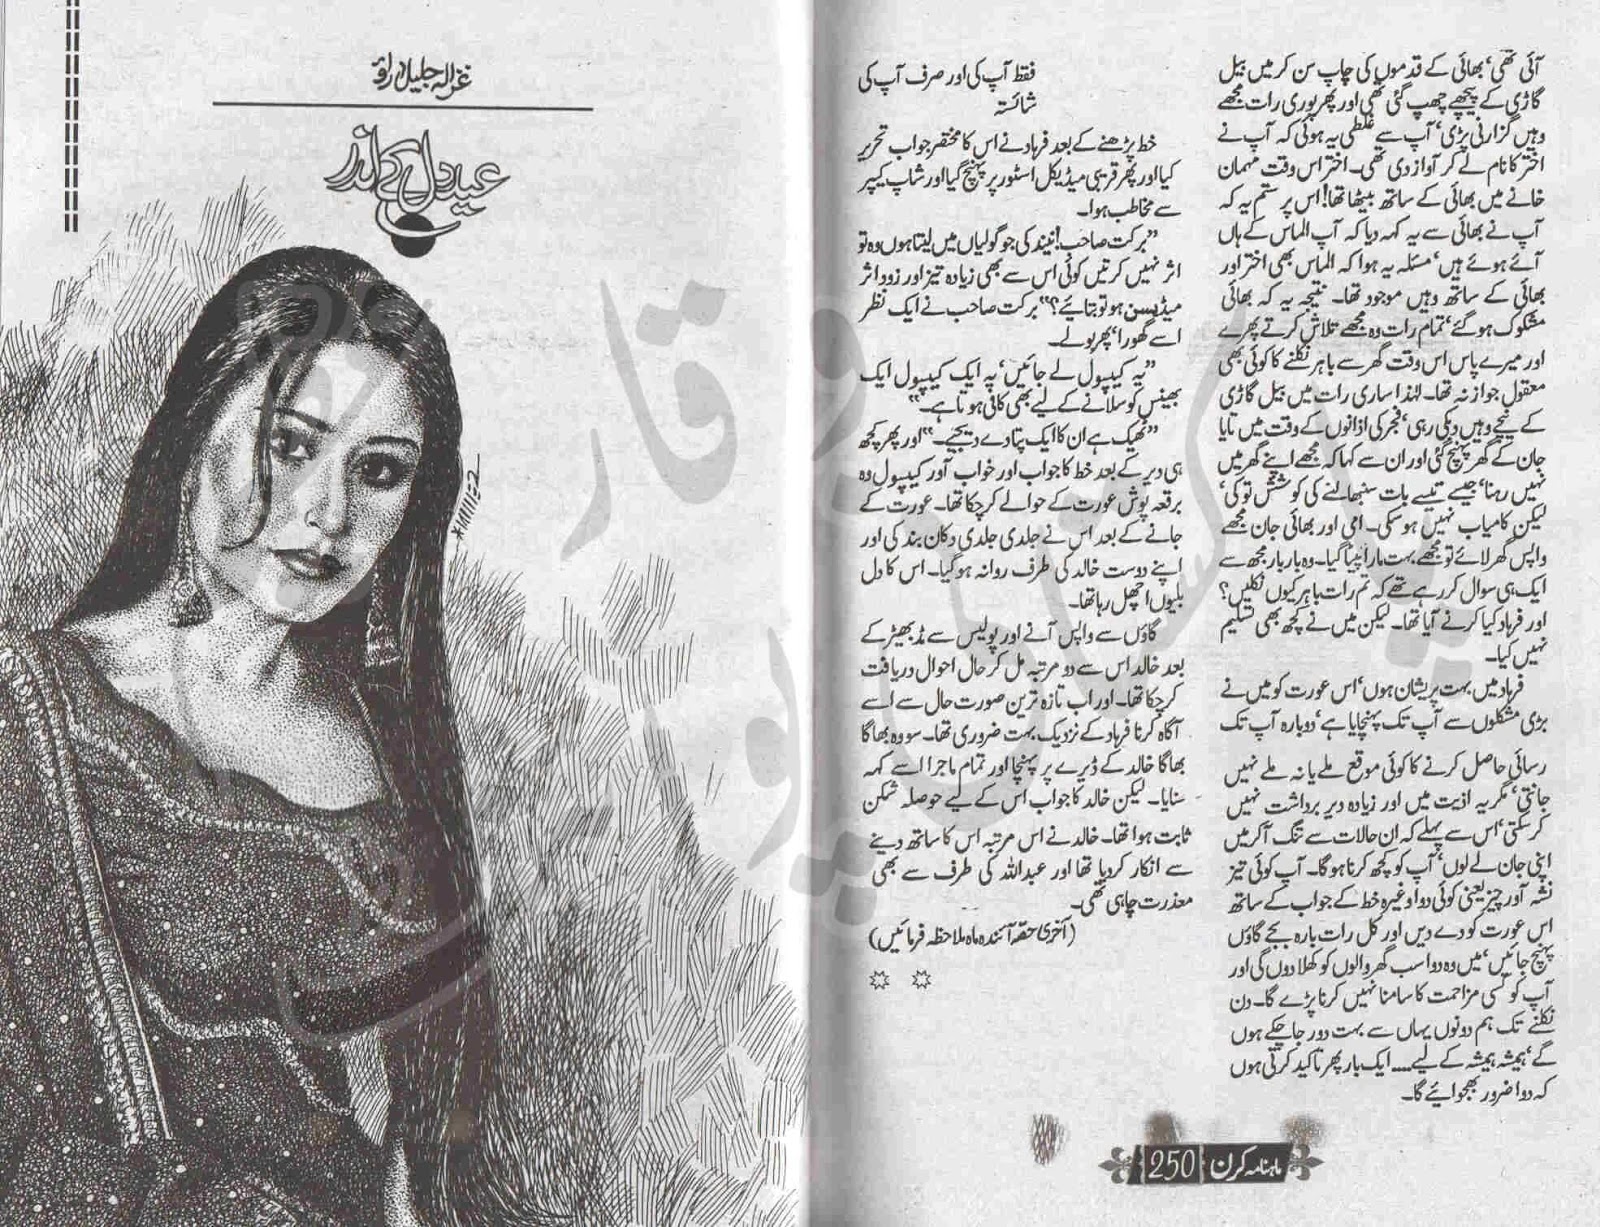 آئی تھی، بھائی کے قدموں کی چاپ سن کر میں بیل
گاڑی کے پیچھے چھپ گئی تھی اور پھر پوری رات مجھے
وہیں گزارنی پڑی، آپ سے غلطی یہ ہوئی کہ آپ نے
اختر کا نام لے کر آواز دی تھی۔ اختر اس وقت مہمان
خانے میں بھائی کے ساتھ بیٹھا تھا! اس پر ستم یہ کہ
آپ نے بھائی سے یہ کہہ دیا کہ آپ الماس کے ہاں
آئے ہوئے ہیں، مسئلہ یہ ہوا کہ الماس بھی اختر اور
بھائی کے ساتھ وہیں موجود تھا۔ نتیجہ یہ کہ بھائی
مشکوک ہو گئے، تمام رات وہ مجھے تلاش کرتے پھرے
اور میرے پاس اس وقت گھر سے باہر نکلنے کا کوئی بھی
معقول جواز نہ تھا۔ لہٰذا ساری رات میں بیل گاڑی
کے نیچے وہیں دبکی رہی، فجر کی اذانوں کے وقت میں تایا
جان کے گھر پہنچ گئی اور ان سے کہا کہ مجھے اپنے گھر میں
نہیں رہنا، جیسے تیسے بات سنبھالنے کی کوشش تو کی،
لیکن کامیاب نہیں ہو سکی۔ امی اور بھائی جان مجھے
واپس گھر لائے تو مجھے بہت مارا پیٹا گیا۔ وہ بار بار مجھ سے
ایک ہی سوال کر رہے تھے کہ تم رات باہر کیوں نکلیں؟
اور فرہاد کیا کرنے آیا تھا۔ لیکن میں نے کچھ بھی تسلیم
نہیں کیا۔
فرہاد میں بہت پریشان ہوں، اس عورت کو میں نے
بڑی مشکلوں سے آپ تک پہنچایا ہے، دوبارہ آپ تک
رسائی حاصل کرنے کا کوئی موقع ملے یا نہ ملے نہیں
جانتی، مگر یہ اذیت میں اور زیادہ دیر برداشت نہیں
کر سکتی، اس سے پہلے کہ ان حالات سے تنگ آ کر میں
اپنی جان لے لوں، آپ کو کچھ کرنا ہو گا۔ آپ کوئی تیز
نشہ آور چیز یعنی کوئی دوا وغیرہ خط کے جواب کے ساتھ
اس عورت کو دے دیں اور کل رات بارہ بجے گاؤں
پہنچ جائیں، میں وہ دوا سب گھر والوں کو کھلا دوں گی اور
آپ کو کسی مزاحمت کا سامنا نہیں کرنا پڑے گا۔ دن
نکلنے تک ہم دونوں یہاں سے بہت دور جا چکے ہوں
گے، ہمیشہ ہمیشہ کے لیے.... ایک بار پھر تاکید کرتی ہوں
کہ دوا ضرور بھجوائیے گا۔
فقط آپ کی اور صرف آپ کی
شائستہ
خط پڑھنے کے بعد فرہاد نے اس کا مختصر جواب تحریر
کیا اور پھر قریبی میڈیکل اسٹور پر پہنچ گیا اور شاپ کیپر
سے مخاطب ہوا۔
"برکت صاحب! نیند کی جو گولیاں میں لیتا ہوں وہ تو
اثر نہیں کرتیں کوئی اس سے بھی زیادہ تیز اور زود اثر
میڈیسن ہو تو بتائیے؟" برکت صاحب نے ایک نظر
اسے گھورا، پھر بولے۔
"یہ کیپسول لے جائیں، یہ ایک کیپسول ایک
بھینس کو سلانے کے لیے بھی کافی ہوتا ہے۔"
"ٹھیک ہے ان کا ایک پتا دے دیجیے۔" اور پھر کچھ
ہی دیر کے بعد خط کا جواب اور خواب آور کیپسول وہ
برقعہ پوش عورت کے حوالے کر چکا تھا۔ عورت کے
جانے کے بعد اس نے جلدی جلدی دکان بند کی اور
اپنے دوست خالد کی طرف روانہ ہو گیا۔ اس کا دل
بلیوں اچھل رہا تھا۔
گاؤں سے واپس آنے اور پولیس سے مڈبھیڑ کے
بعد خالد اس سے دو مرتبہ مل کر حال احوال دریافت
کر چکا تھا۔ اور اب تازہ ترین صورت حال سے اسے
آگاہ کرنا فرہاد کے نزدیک بہت ضروری تھا۔ سو وہ بھاگا
بھاگا خالد کے ڈیرے پر پہنچا اور تمام ماجرا اسے کہہ
سنایا۔ لیکن خالد کا جواب اس کے لیے حوصلہ شکن
ثابت ہوا تھا۔ خالد نے اس مرتبہ اس کا ساتھ دینے
سے انکار کر دیا تھا اور عبداللہ کی طرف سے بھی
معذرت چاہی تھی۔
(آخری حصہ آئندہ ماہ ملاحظہ فرمائیں)
ماہنامہ کرن 250
غزالہ جلیل راؤ
عید دل کے اندر